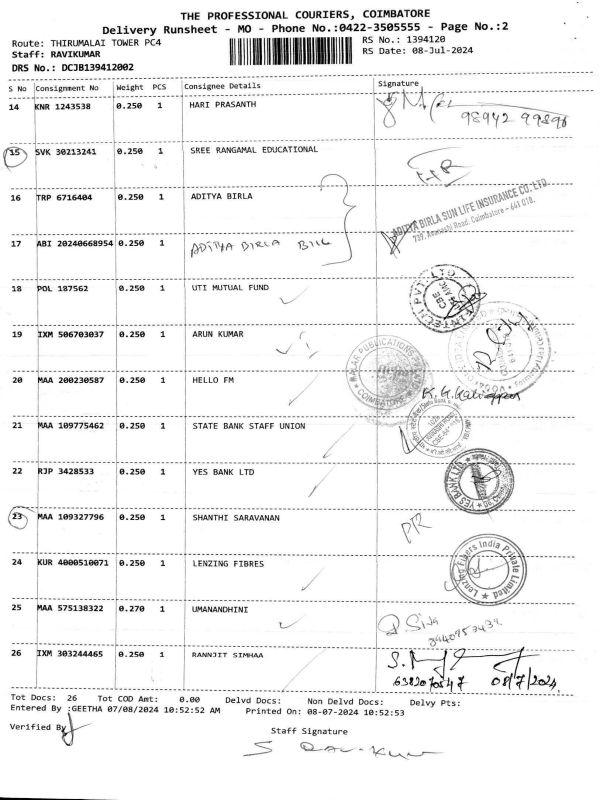 THE PROFESSIONAL COURIERS, COIMBATORE
Delivery Runsheet - MO - Phone No.:0422-3505555 - Page No.:2
Route: THIRUMALAI TOWER PC4 RS No.: 1394120
Staff: RAVIKUMAR RS Date: 08-Jul-2024
DRS No.: DCJB139412002
S No Consignment No Weight PCS Consignee Details Signature
14 KNR 1243538 0.250 1 HARI PRASANTH
98942 99896
15 SVK 30213241 0.250 1 SREE RANGAMAL EDUCATIONAL
16 TRP 6716404 0.250 1 ADITYA BIRLA
ADITYA BIRLA SUN LIFE INSURANCE CO. LTD.
739, Avinashi Road, Coimbatore - 641 018.
17 ABI 20240668954 0.250 1 ADITYA BIRLA
18 POL 187562 0.250 1 UTI MUTUAL FUND
FINTECH PVT. LTD
CBE
19 IXM 506703037 0.250 1 ARUN KUMAR
MALAR PUBLICATIONS
COIMBATORE
20 MAA 200230587 0.250 1 HELLO FM
21 MAA 109775462 0.250 1 STATE BANK STAFF UNION
22 RJP 3428533 0.250 1 YES BANK LTD
YES BANK LTD
23 MAA 109327796 0.250 1 SHANTHI SARAVANAN
PR
24 KUR 4000510071 0.250 1 LENZING FIBRES
Lenzing Fibers India Private Limited
25 MAA 575138322 0.270 1 UMANANDHINI
26 IXM 303244465 0.250 1 RANNJIT SIMHAA
6382070547 08/7/2024
Tot Docs: 26 Tot COD Amt: 0.00 Delvd Docs: Non Delvd Docs: Delvy Pts:
Entered By :GEETHA 07/08/2024 10:52:52 AM Printed On: 08-07-2024 10:52:53
Verified By
Staff Signature